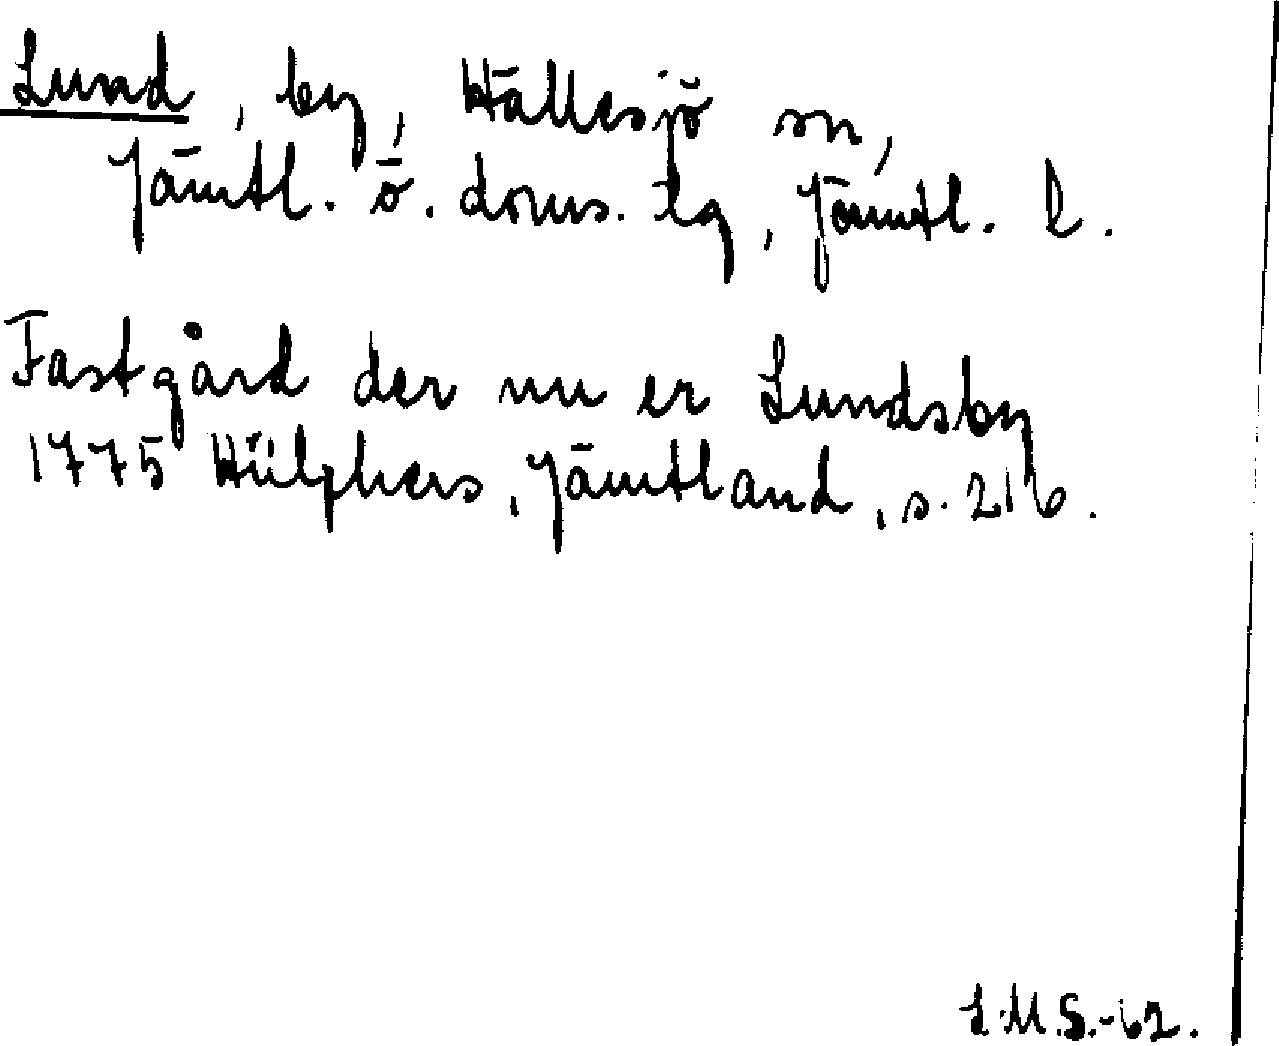 Lund, by, Hällesjö sn,
Jämtl. ö. doms. lg, Jämtl. l.
Fastgård der nu er Lundsby
1775 Hülphers, Jämtland, s. 216.
L.M.S.-62.